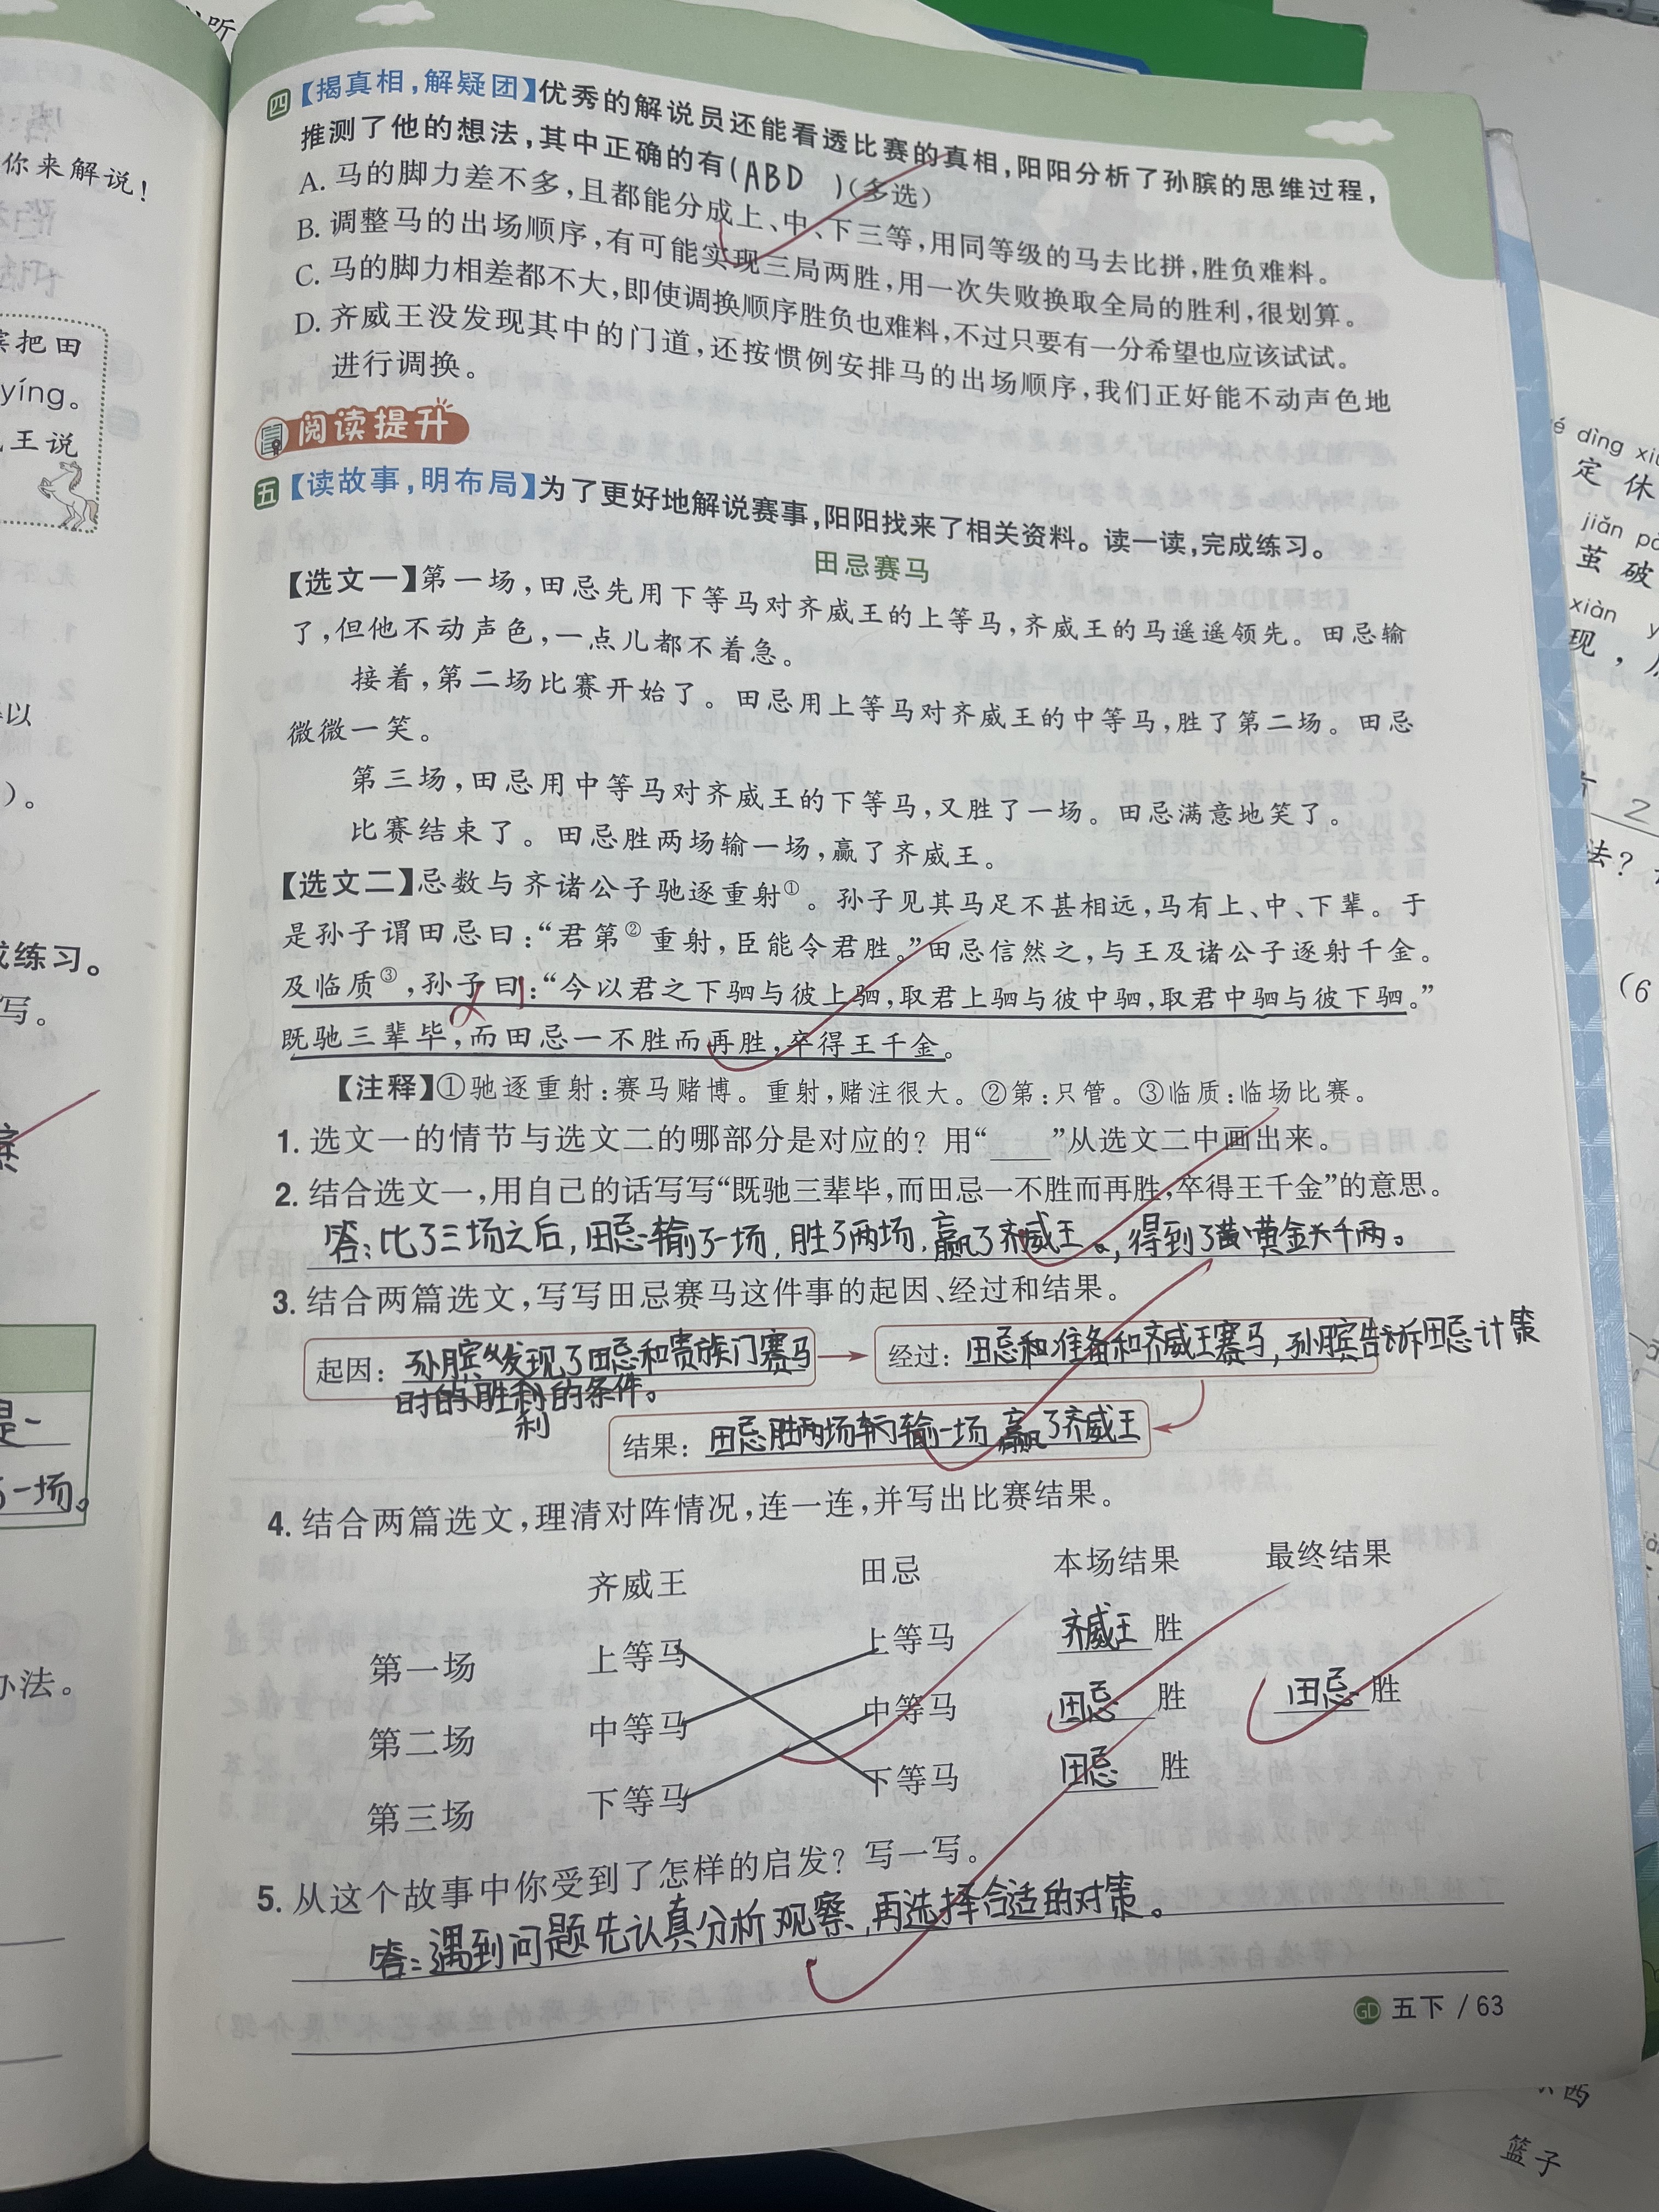 你来解说！
四【揭真相,解疑团】优秀的解说员还能看透比赛的真相,阳阳分析了孙膑的思维过程,
推测了他的想法,其中正确的有(ABD )(多选)
A. 马的脚力差不多,且都能分成上、中、下三等,用同等级的马去比拼,胜负难料。
B. 调整马的出场顺序,有可能实现三局两胜,用一次失败换取全局的胜利,很划算。
C. 马的脚力相差都不大,即使调换顺序胜负也难料,不过只要有一分希望也应该试试。
D. 齐威王没发现其中的门道,还按惯例安排马的出场顺序,我们正好能不动声色地
进行调换。
阅读提升
五【读故事,明布局】为了更好地解说赛事,阳阳找来了相关资料。读一读,完成练习。
田忌赛马
【选文一】第一场,田忌先用下等马对齐威王的上等马,齐威王的马遥遥领先。田忌输
了,但他不动声色,一点儿都不着急。
接着,第二场比赛开始了。田忌用上等马对齐威王的中等马,胜了第二场。田忌
微微一笑。
第三场,田忌用中等马对齐威王的下等马,又胜了一场。田忌满意地笑了。
比赛结束了。田忌胜两场输一场,赢了齐威王。
【选文二】忌数与齐诸公子驰逐重射①。孙子见其马足不甚相远,马有上、中、下辈。于
是孙子谓田忌曰:“君第②重射,臣能令君胜。”田忌信然之,与王及诸公子逐射千金。
及临质③,孙子曰:“今以君之下驷与彼上驷,取君上驷与彼中驷,取君中驷与彼下驷。”
既驰三辈毕,而田忌一不胜而再胜,卒得王千金。
【注释】①驰逐重射:赛马赌博。重射,赌注很大。②第:只管。③临质:临场比赛。
1. 选文一的情节与选文二的哪部分是对应的？用“____”从选文二中画出来。
2. 结合选文一,用自己的话写写“既驰三辈毕,而田忌一不胜而再胜,卒得王千金”的意思。
答:比了三场之后,田忌输了一场,胜了两场,赢了齐威王。,得到了黄金千两。
3. 结合两篇选文,写写田忌赛马这件事的起因、经过和结果。
起因: 孙膑发现了田忌和贵族门赛马
时的胜利的条件。
利
经过: 田忌和准备和齐威王赛马,孙膑告诉田忌计策
结果: 田忌胜两场输一场 赢了齐威王
4. 结合两篇选文,理清对阵情况,连一连,并写出比赛结果。
齐威王 田忌 本场结果 最终结果
第一场 上等马 上等马 齐威王 胜
第二场 中等马 中等马 田忌 胜 田忌 胜
第三场 下等马 下等马 田忌 胜
5. 从这个故事中你受到了怎样的启发？写一写。
答:遇到问题先认真分析观察,再选择合适的对策。
GD 五下 / 63
把田
yíng。
王说
以
)。
练习。
写。
一场。
办法。
dìng
定 休
jiǎn
茧 破
xiàn
现，
2
法?
(6
西
篮子